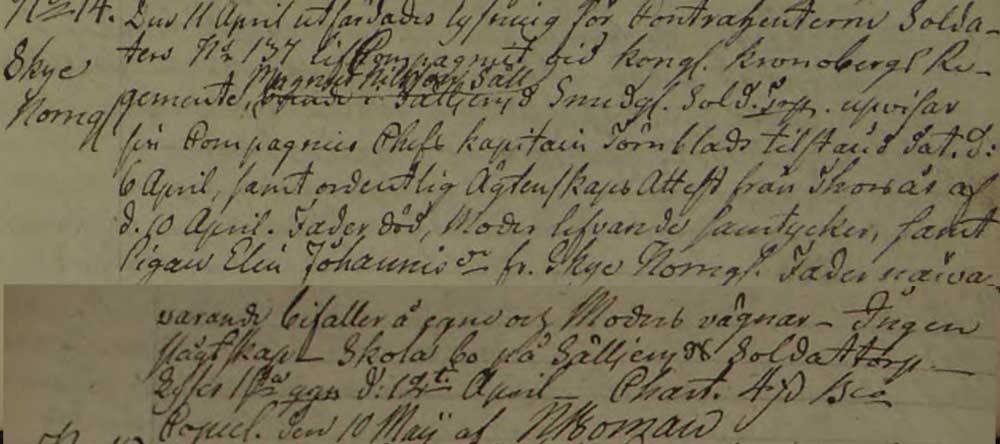 No 14. Den 11 April utfärdades lysning för Contrahenterne Solda-
Skye ten No 137 lif Compagniet vid Kongl. Kronobergs Re-
Magnus Nilsson Säll
Norrg. gemente, Sälljeryd Smedsg. Sold. Torp. upvisar
sin Compagnies Chefs Kapitain Törnblads tilstånd Dat. d:
6 April, samt ordentlig Ägtenskaps Attest från Thorsås af
d. 10 April. Fader död, Moder lefvande samtycker, samt
Pigan Elin Johannis dr fr. Skye Norrg. Fader närva-
varande bifaller å egne och Moders vägnar - Ingen
slägtskap - Skola bo på Sälljeryds Soldattorp -
Lyses 1sta ggn d: April - Chart. 4
Copul. den 10 Maij af